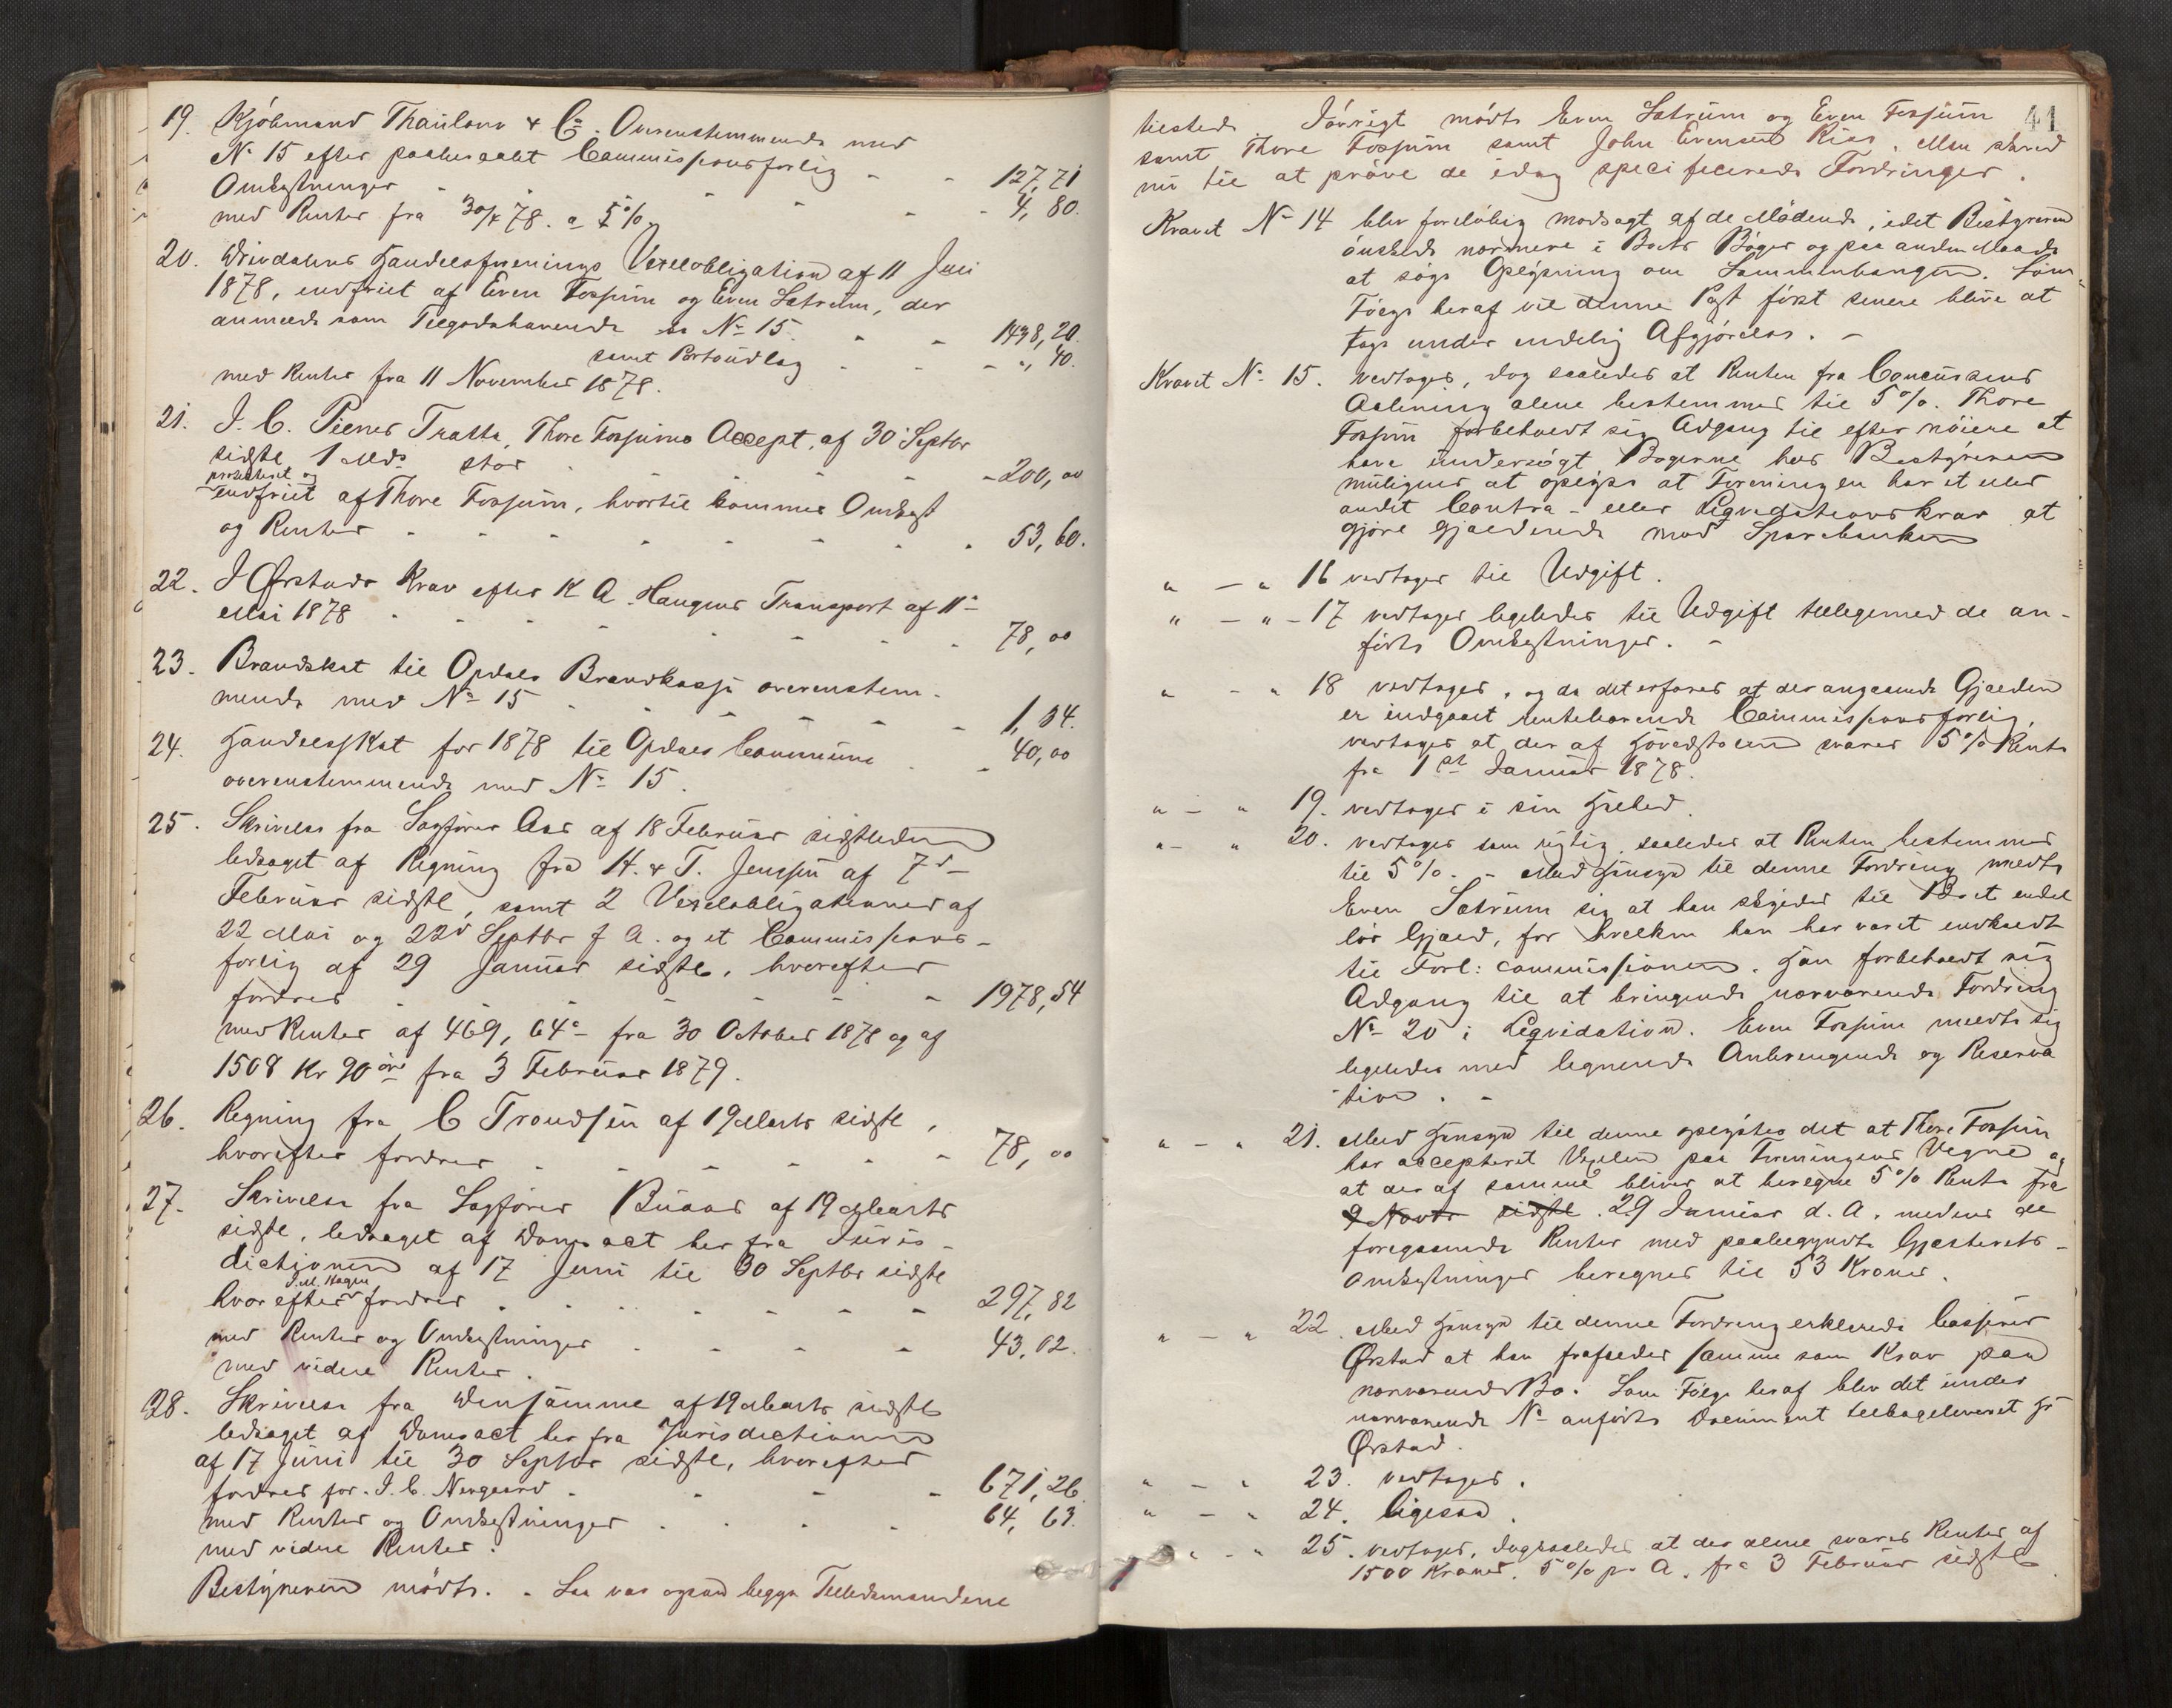 19. Kjøbmand Thaulow & Co. Overenstemmende med
No 15 efter paaberaabt Commissionsforlig - - 127,71
Omkostninger - - - - - 4,80.
med Renter fra 30/4 78. a 5%
20. Drivdalens Handelsforenings Vexelobligation af 11 Juli
1878, indfriet af Even Fossum og Even Sætrum, der
anmeldes som Tilgodehavende No 15. - - 1438,20.
samt Portoudlæg - - - ", 40.
med Renter fra 11 November 1878.
21. J. C. Pienes Tratta, Thore Fossums Accept, af 30 Septbr
sidste 1 Mds stor - - - - - 200,00
protesteret og
indfriet af Thore Fossum, hvortil kommer Omkost
og Renter - - - - - - - 53,60.
22. J Ørstads Krav efter K A. Haugens Transport af 11te
Mai 1878 - - - - - - 78,00
23. Brandskat til Opdals Brandkasse overenstem-
mende med No 15 - - - - - 1,34.
24. Handelsskat for 1878 til Opdals Commune - - 40,00
overenstemmende med No 15.
25. Skrivelse fra Sagfører Aas af 18 Februar sidstleden
ledsaget af Regning fra H. & T. Jenssen af 7de
Februar sidstl, samt 2 Vexelobligationer af
22 Mai og 22d Septbr f. A. og et Commissions-
forlig af 29 Januar sidstl, hvorefter
fordres - - - - - - 1978,54
med Renter af 469, 64 fra 30 October 1878 og af
1508 Kr 90 øre fra 3 Februar 1879.
26. Regning fra C Trondsen af 19 Marts sidstl,
hvorefter fordres - - - - - - 78,00
27. Skrivelse fra Sagfører Buaas af 19 Marts
sidstl, ledsaget af Domsact her fra Juris-
dictionen af 17 Juni til 30 Septbr sidstl
J. M. Hagen
hvorefter fordrer - - - - - - 297,82
med Renter og Omkostninger - - - - 43,02.
med videre Renter.
28. Skrivelse fra densamme af 19 Marts sidstl
ledsaget af Domsact her fra Jurisdictionen
af 17 Juni til 30 Septbr sidstl, hvorefter
fordres for J. C. Nergaard - - - - 671,26.
med Renter og Omkostninger - - - - 64,63.
med videre Renter.
Bestyreren mødte. - Saa var ogsaa begge Tillidsmændene
41
tilstede. Iøvrigt mødte Even Sætrum og Even Fossum
samt Thore Fossum samt John Evensen Rise. Man skred
nu til at prøve de idag specificerede Fordringer.
Kravet No 14 blev foreløbig modsagt af de Mødende, idet Bestyreren
ønskede nærmere i Boets Bøger og paa anden Maade
at søge Oplysning om Sammenhængen. Som
Følge heraf vil denne Post først senere blive at
tage under endelig Afgjørelse. -
Kravet No 15. vedtages, dog saaledes at Renten fra Concursens
Aabning alene bestemmes til 5%. Thore
Fossum forbeholdt sig Adgang til efter nøiere at
have undersøgt Bøgerne hos Bestyreren
muligens at oplyse at Foreningen har et eller
andet Contra- eller Liqvidationskrav at
gjøre gjældende mod Sparebanken
" - " 16 vedtages til Udgift.
" - " - 17 vedtages ligeledes til Udgift tilligemed de an-
førte Omkostninger. -
" - " 18 vedtages, og da det erfares at der angaaende Gjælden
er indgaaet rentebærende Commissionsforlig,
vedtages at der af Hovedstolen svares 5% Rente
fra 1ste Januar 1878.
" - " 19. vedtages i sin Helhed.
" - " 20. vedtages som rigtig, saaledes at Renten bestemmes
til 5%. - Med Hensyn til denne Fordring meldte
Even Sætrum sig at han skylder til Boet endel
løs Gjæld, for hvilken han har været indkaldt
til Forl: commissionen. Han forbeholdt sig
Adgang til at bringende nærværende Fordring
No 20 i Liqvidation. Even Fossum meldte sig
ligeledes med lignende Anbringende og Reserva
tion. -
" - " 21. Med Hensyn til denne oplystes det at Thore Fossum
har accepteret Vexelen paa Foreningens Vegne og
at der af samme bliver at beregne 5% Rente fra
9 Novbr sidstl. 29 Januar d. A. medens de
foregaaende Renter med paabegyndte Gjæsterets-
omkostninger beregnes til 53 Kroner.
" - " 22. Med Hensyn til denne Fordring erklærede Casserer
Ørstad at han frafalder samme som Krav paa
nærværende Bo. Som Følge heraf blev det under
nærværende No anførte Document tilbageleveret Hr
Ørstad.
" - " 23. vedtages.
" - " 24. ligesaa.
" - " 25. vedtages, dog saaledes at der alene svares Renter af
1500 Kroner. 5% p. A. fra 3 Februar sidstl